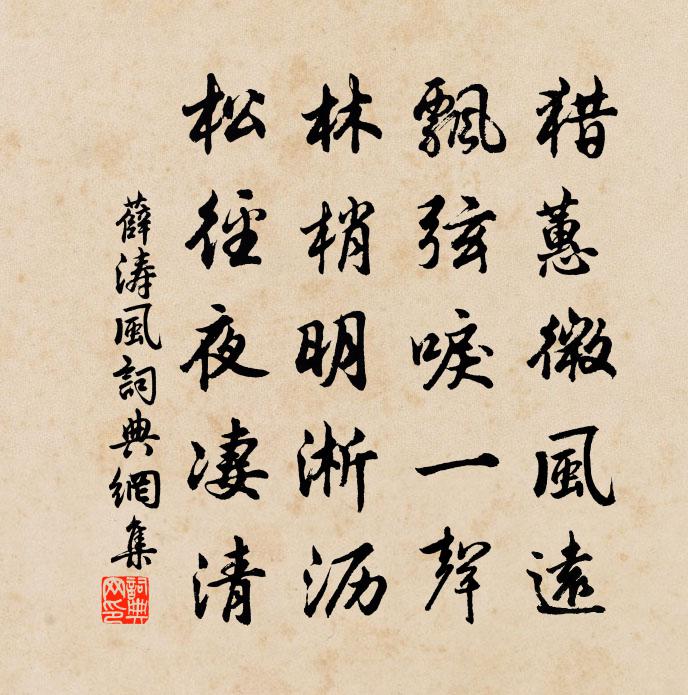 猎蕙微風遠
飄弦唳一聲
林梢明淅沥
松徑夜凄清
薛濤風詞典網集
詞典網印